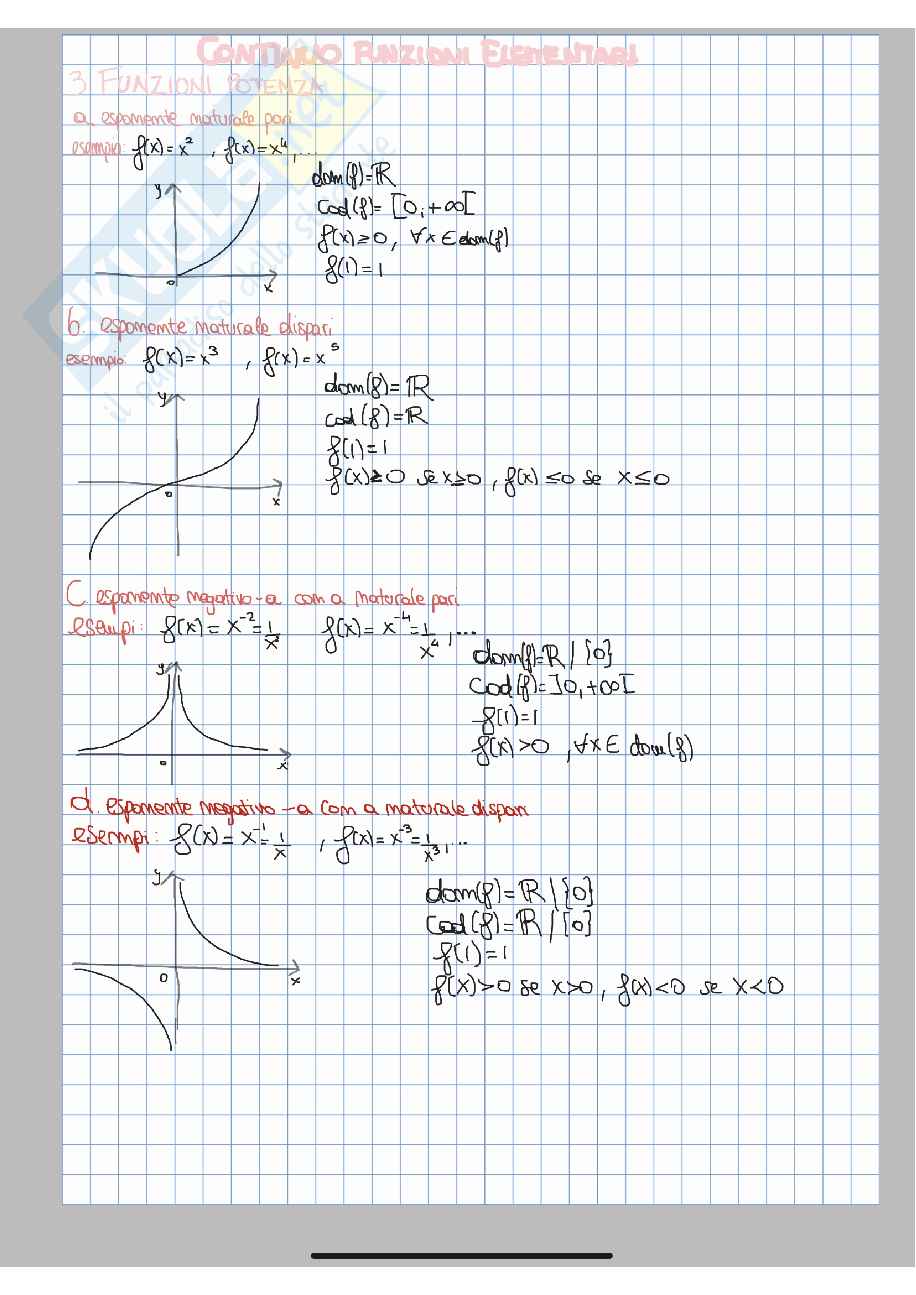 CONTINUO FUNZIONI ELEMENTARI
3 FUNZIONI POTENZA
a. esponente naturale pari
esempio: f(x) = x², f(x) = x⁴, ...
dom(f) = ℝ
cod(f) = [0, +∞[
f(x) ≥ 0, ∀x ∈ dom(f)
f(1) = 1
y
0
x
b. esponente naturale dispari
esempio f(x) = x³, f(x) = x⁵
dom(f) = ℝ
cod(f) = ℝ
f(1) = 1
f(x) ≥ 0 se x ≥ 0, f(x) ≤ 0 se x ≤ 0
y
0
x
C esponente negativo -a con a naturale pari
esempi: f(x) = x⁻² = 1/x² f(x) = x⁻⁴ = 1/x⁴, ...
dom(f) = ℝ | {0}
Cod(f) = ]0, +∞[
f(1) = 1
f(x) > 0, ∀x ∈ dom(f)
y
0
x
d. esponente negativo -a con a naturale dispari
esempi: f(x) = x⁻¹ = 1/x, f(x) = x⁻³ = 1/x³, ...
dom(f) = ℝ | {0}
Cod(f) = ℝ | {0}
f(1) = 1
f(x) > 0 se x > 0, f(x) < 0 se x < 0
y
0
x
SKUOLA.net
il paradiso dello studente